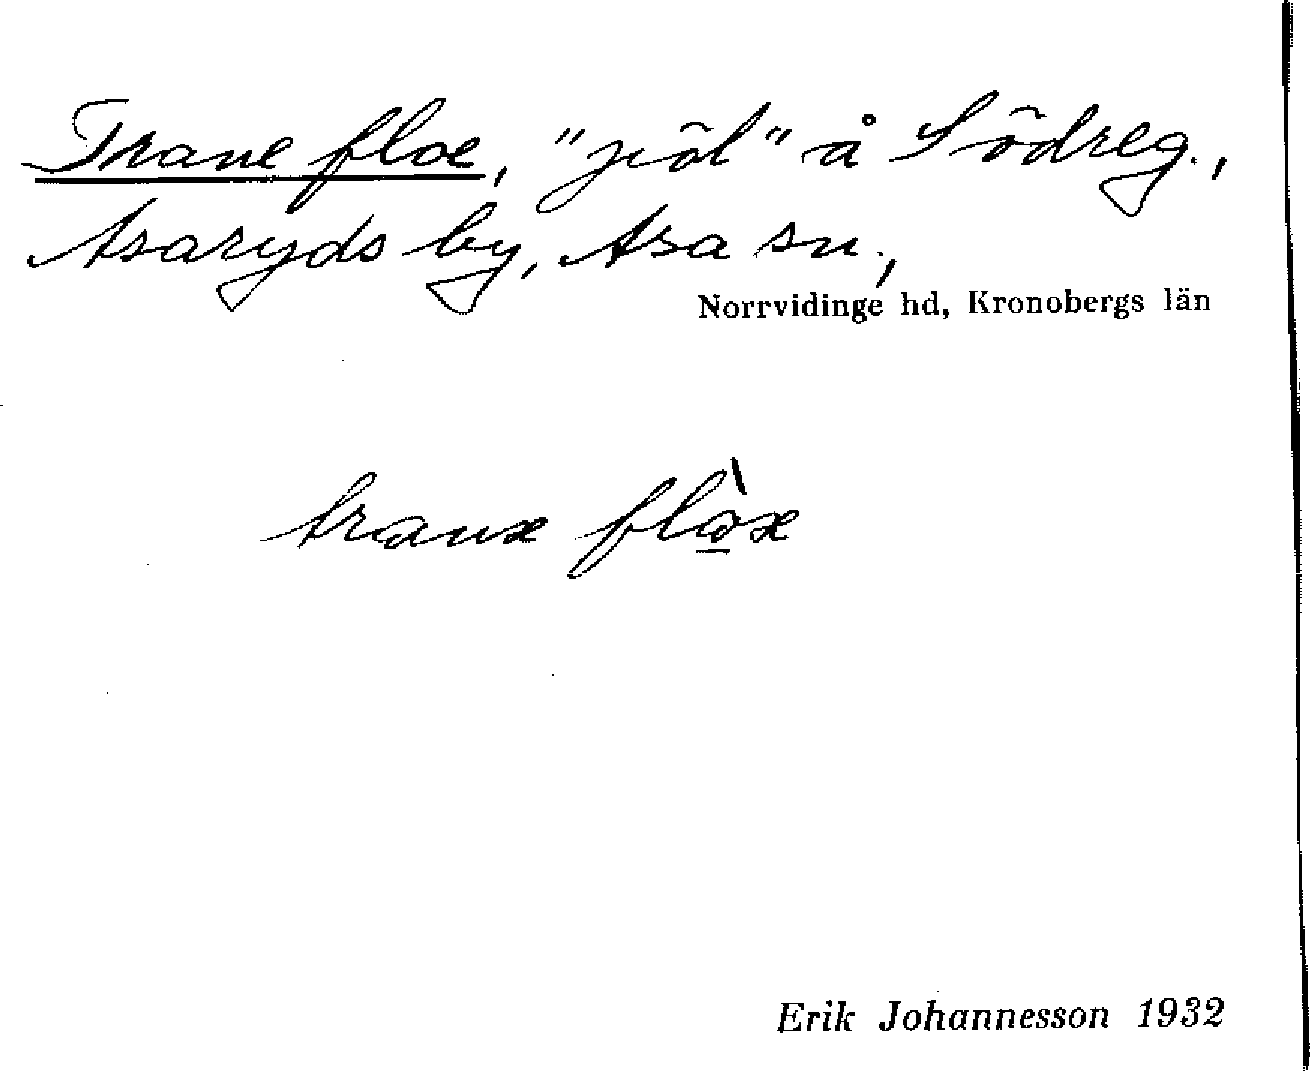 Trane floe, "jiöl" å Södreg.,
Asaryds by, Asa sn.,
Norrvidinge hd, Kronobergs län
Erik Johannesson 1932